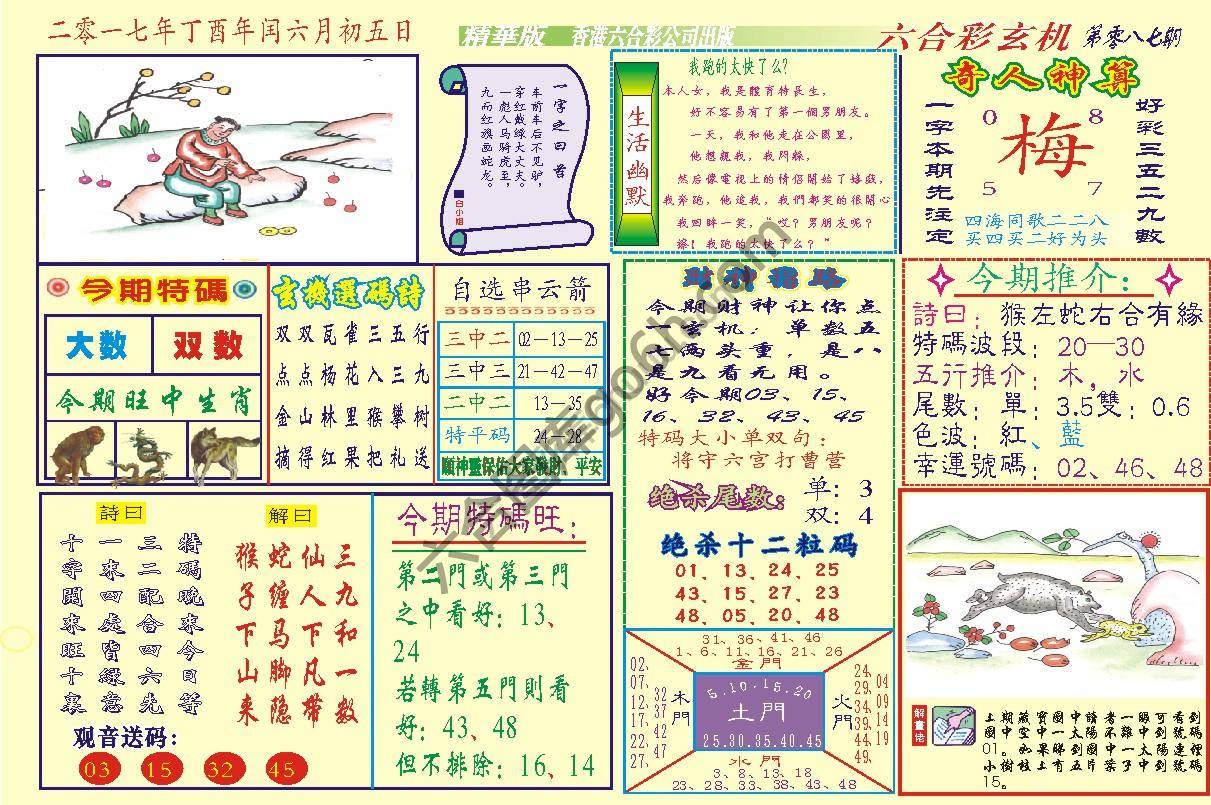 二零一七年丁酉年闰六月初五日
精華版 香港六合彩公司出版
六合彩玄机 第零八七期
一字之曰者
车前车后不见驴,
穿红戴绿大丈夫。
一彪人马骑虎至,
九面红旗画蛇龙。
白小姐
生活幽默
我跑的太快了么?
本人女,我是體育特長生,
好不容易有了第一個男朋友。
一天,我和他走在公園里,
他想親我,我閃躲,
然后像電視上的情侶開始了嬉戲,
我奔跑,他追我,我們都笑的很開心
我回眸一笑,"哎?男朋友呢?
擦!我跑的太快了么?"
奇人神算
一字本期先注定
0 8
梅
5 7
好彩三五二九數
四海同歌二二八
买四买二好为头
今期特碼
大数 双数
今期旺中生肖
玄機選碼詩
双双瓦雀三五行
点点杨花入三九
金山林里猴攀树
摘得红果把礼送
自选串云箭
三中二 02—13—25
三中三 21—42—47
二中二 13—35
特平码 24—28
願神靈保佑大家發財、平安
財神靚路
今期财神让你点
一玄机:单数五
七两头重,是八
是九看无用。
好今期03、15、
16、32、43、45
特码大小单双句:
将守六宫打曹营
绝杀尾数:
单:3
双:4
绝杀十二粒码
01、13、24、25
43、15、27、23
48、05、20、48
今期推介:
詩曰:猴左蛇右合有緣
特碼波段:20—30
五行推介:木,水
尾數:單:3.5雙:0.6
色波:紅、藍
幸運號碼:02、46、48
詩曰
特碼晚來今日等
三二配合四六先
一來四處皆綠意
十字開來旺十裏
解曰
三九和一数
仙人下凡带
蛇缠马脚隐
猴子下山来
观音送码:
03 15 32 45
今期特碼旺:
第二門或第三門
之中看好:13、
24
若轉第五門則看
好:43、48
但不排除:16、14
31、36、41、46
1、6、11、16、21、26
金門
02、07、12、17、22、27、
32、37、42、47
木門
5.10.15.20
土門
25.30.35.40.45
火門
24、29、34、39、44、49、
04、09、14、19
水門
3、8、13、18
23、28、33、38、43、48
解畫佬
上期藏寶圖中讀者一眼可看到
圖中空中一太陽不難中到號碼
01。如果睇到圖中一太陽連俚
小樹枝上有五片葉子中到號碼
15。
六合图库go6h.com